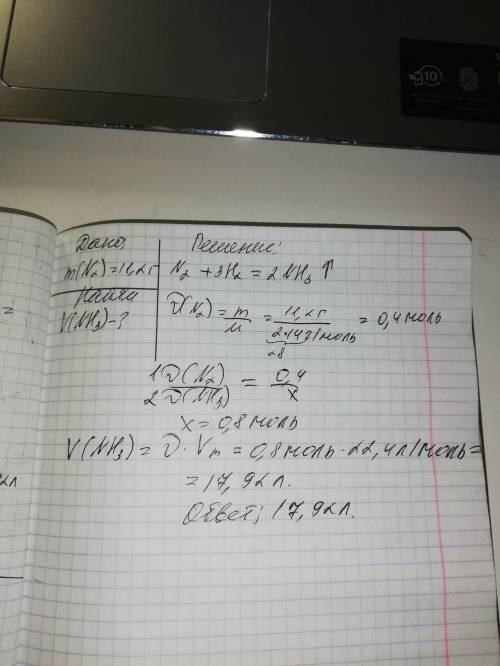 10
Дано:
m(N₂)=11,2г
Найти
V(NH₃)-?
Решение:
N₂ + 3H₂ = 2NH₃ ↑
ν(N₂) = m/M = 11,2г/2·14г/моль = 0,4 моль
28
1ν(N₂)/2ν(NH₃) = 0,4/x
x = 0,8 моль
V(NH₃) = ν · Vm = 0,8 моль · 22,4л/моль =
= 17,92л.
Ответ: 17,92л.
2л
=